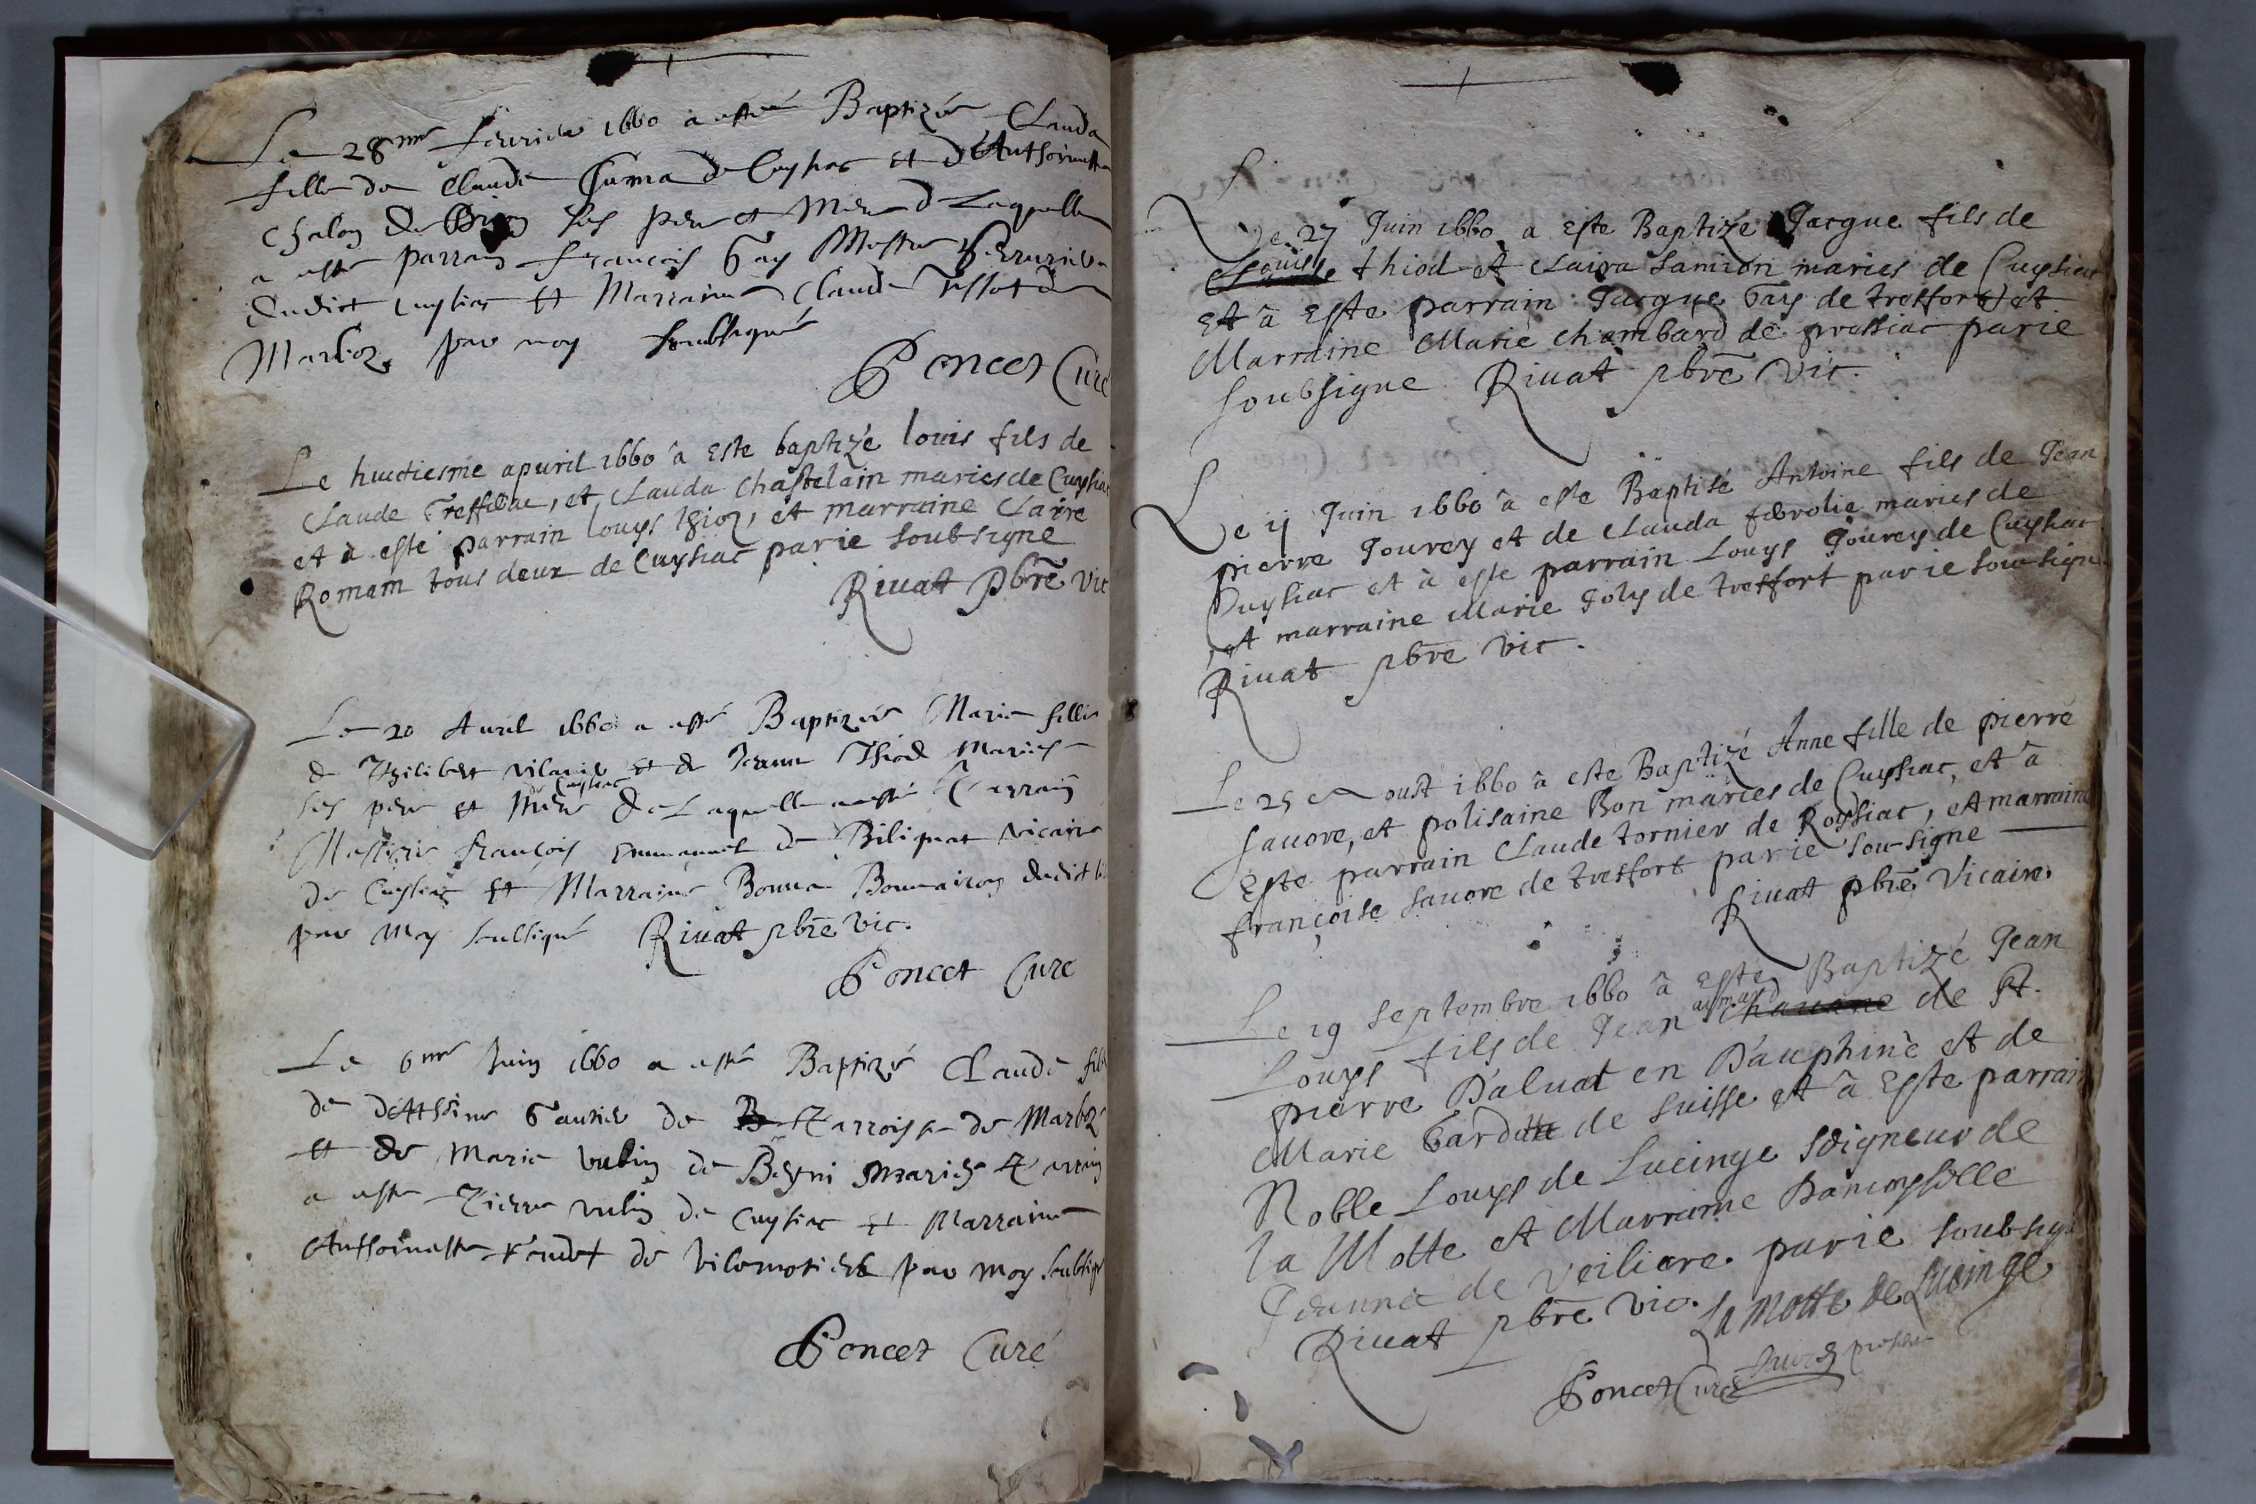 Le 28me feurier 1660 a esté Baptizée Clauda
fille de Claude Cuma de Cuysiac et d'Anthoinette
Chalon de ses pere et Mere de Laquelle
a esté parrain francois Gay Messire
dudict Cuysiac et Marraine Claude Tissot de
Marboz par moy soubsigné
Poncet Curé
Le huictiesme apuril 1660 à Este baptizé louis fils de
Claude Treffillac, et Clauda Chastelain maries de Cuysiac
et à esté parrain louys et marraine Claire
Romam tous deux de Cuysiac par ie soubsigne
Riuat pbre vic
Le 20 Auril 1660 a esté Baptizée Marie fille
de Philibert vilanie et de Jeanne Thiod Mariés
de Cuysiac
ses pere et Mere de Laquelle a esté Parrain
Messire françois Emmanuel de Bilignat vicaire
de Cuysiac et Marraine Bonna dudict
par Moy soubsigné Riuat pbre vic.
Poncet Curé
Le 6me Juin 1660 a esté Baptizé Claude fils
de Gautier de B Parroisse de Marboz
et de Marie vulin de Beyni Mariés Parrain
a esté Pierre vulin de Cuysiac et Marraine
Anthoinette de vilemotier par moy soubsigné
Poncet Curé
Le 27 Juin 1660 a Este Baptizé Jacque fils de
Louis thiod et Claira Lamiron maries de Cuysiac
et à Este parrain Jacque Gay de tresfort et
Marraine Marie Chambard de pressiac par ie
soubsigne Riuat pbre vic.
Le ij Juin 1660 à este Baptisé Antoine fils de Jean
pierre Jourey et de Clauda feurolie maries de
Cuysiac et à este parrain Louys Jourey de Cuysiac
et marraine Marie Joly de tresfort par ie sousigne
Riuat pbre vic.
Le 25 Aoust 1660 à este Baptizé Anne fille de pierre
sauore, et polisaine Bon maries de Cuysiac, et à
Este parrain Claude tornier de Rossiac, et marraine
françoise sauore de tresfort par ie sou-signe
Riuat pbre Vicaire.
Le 19 septembre 1660 à Este Baptizé Jean
Louys fils de Jean aymard chauane de St.
pierre D'aluat en D'auphinè et de
Marie Gardette de suisse et à Este parrain
Noble Louys de Lucinge seigneur de
la Motte et Marraine Damoyselle
Jeanne de veiliere par ie soubsigne
Riuat pbre vic. la Motte de Lucinge
Poncet Curé